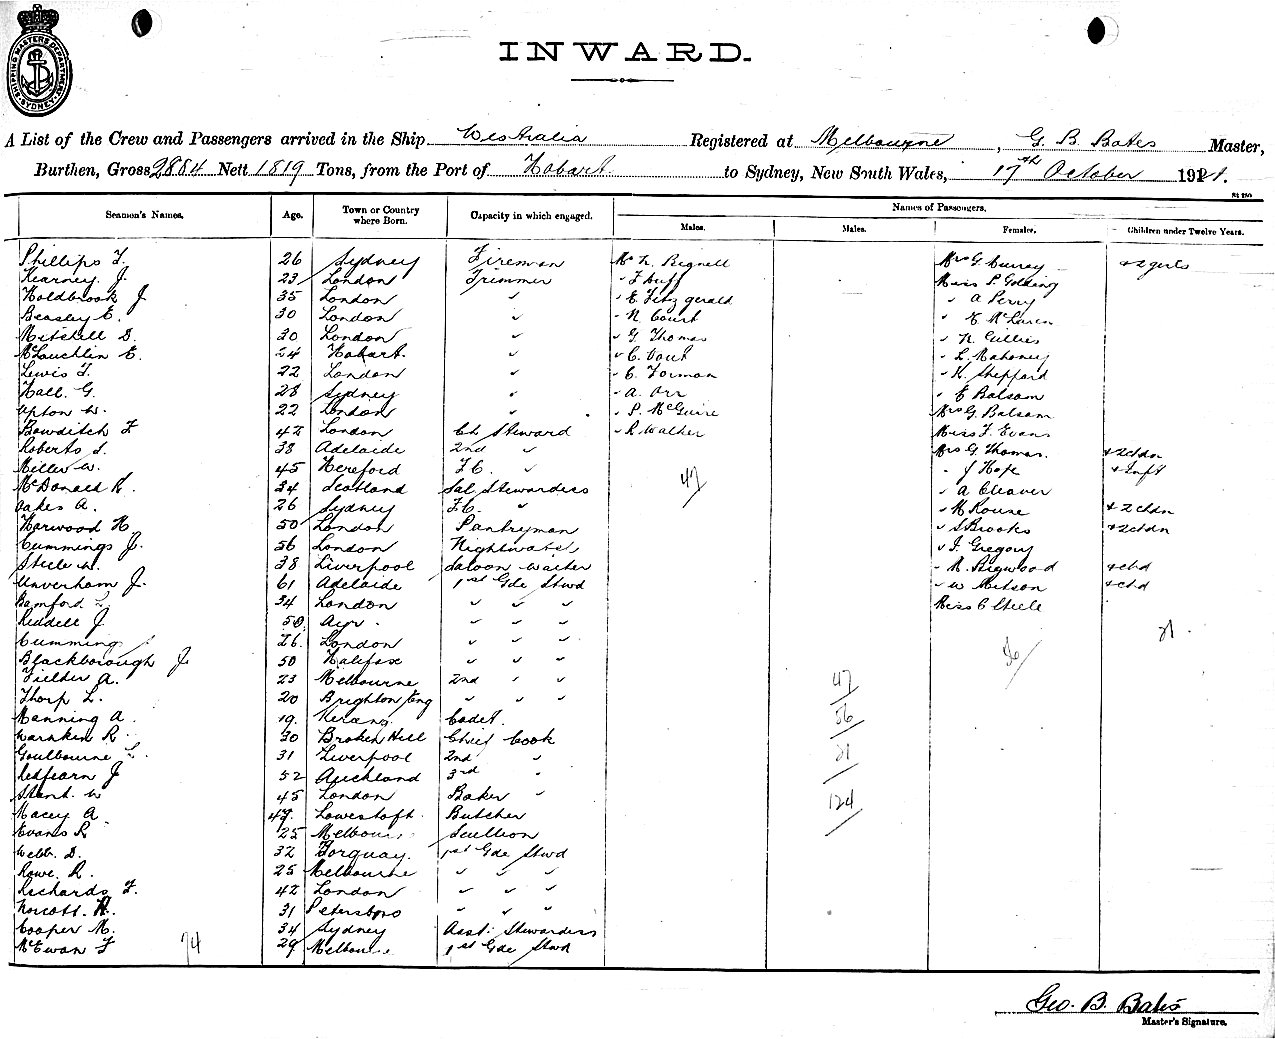 SHIPPING MASTERS DEPARTMENT SYDNEY
INWARD.
A List of the Crew and Passengers arrived in the Ship Westralia Registered at Melbourne, G. B. Bates Master,
Burthen, Gross 2884 Nett 1819 Tons, from the Port of Hobart to Sydney, New South Wales, 17th October 1921.
Names of Passengers.
Seamen's Names. Age. Town or Country where Born. Capacity in which engaged. Males. Males. Females. Children under Twelve Years.
Phillips F. 26 Sydney Fireman Mr N. Bignell Mrs G Murray + 2 girls
Kearney J. 23 London Trimmer " F Huff Miss P. Golding
Holdbrook J 35 London " " E Fitzgerald " A Perry
Beasley E. 30 London " " N Court " E McLaren
Mitchell D. 30 London " " G Thomas " N Gillies
McLauchlin E. 24 Hobart " " C. " L. Mahoney
Lewis F. 22 London " " C. Forman " K. Sheppard
Hall G. 28 Sydney " " A. Orr " E Balsam
Upton W. 22 London " " P. McGuire Mrs G. Balsam
Bowditch F 42 London Ch Steward " R Walker Miss F. Evans
Roberts S. 38 Adelaide 2nd " Mrs G Thomas. + 2 chdn
Miller W. 45 Hereford F.C. " " J Hope + Inft
McDonald R. 34 Scotland Sal Stewardess 47 " A Cleaver
Oakes A. 26 Sydney F.C. " " M Rouse + 2 chdn
Harwood H 50 London Pantryman " S Brooks + 2 chdn
Cummings J. 56 London Nightwatch " I. Gregory
Steele W. 38 Liverpool Saloon Waiter " R. Pigwood + chd
Unverham J. 61 Adelaide 1st Gde Stwd " W Mitson + chd
Bamford L. 34 London " " " Miss C Steele
Riddell J 50 Ayr. " " "
Cumming J 26. London " " " 21.
Blackborough J. 50 Halifax " " " 56
Fielder A. 23 Melbourne 2nd " " " 47
Thorp L. 20 Brighton Eng " " "
Manning A. 19. Kerang Cadet. 56
R. 30 Broken Hill Chief Cook
Goulbourne L. 31 Liverpool 2nd " 21
Redfearn J 52 Auckland 3rd "
W 45 London Baker " 124
Macey A. 47. Lowestoft. Butcher
Evans R 25 Melbourne Scullion
Webb. D. 32 Torquay. 1st Gde Stwd
Rowe. R. 25 Melbourne " " "
Richards F. 42 London " " "
Norcott. H. 31 Petersboro " " "
Cooper M. 34 Sydney Asst. Stewardess
McEwan F 74 29 Melbourne 1st Gde Stwd
Geo. B. Bates
Master's Signature.